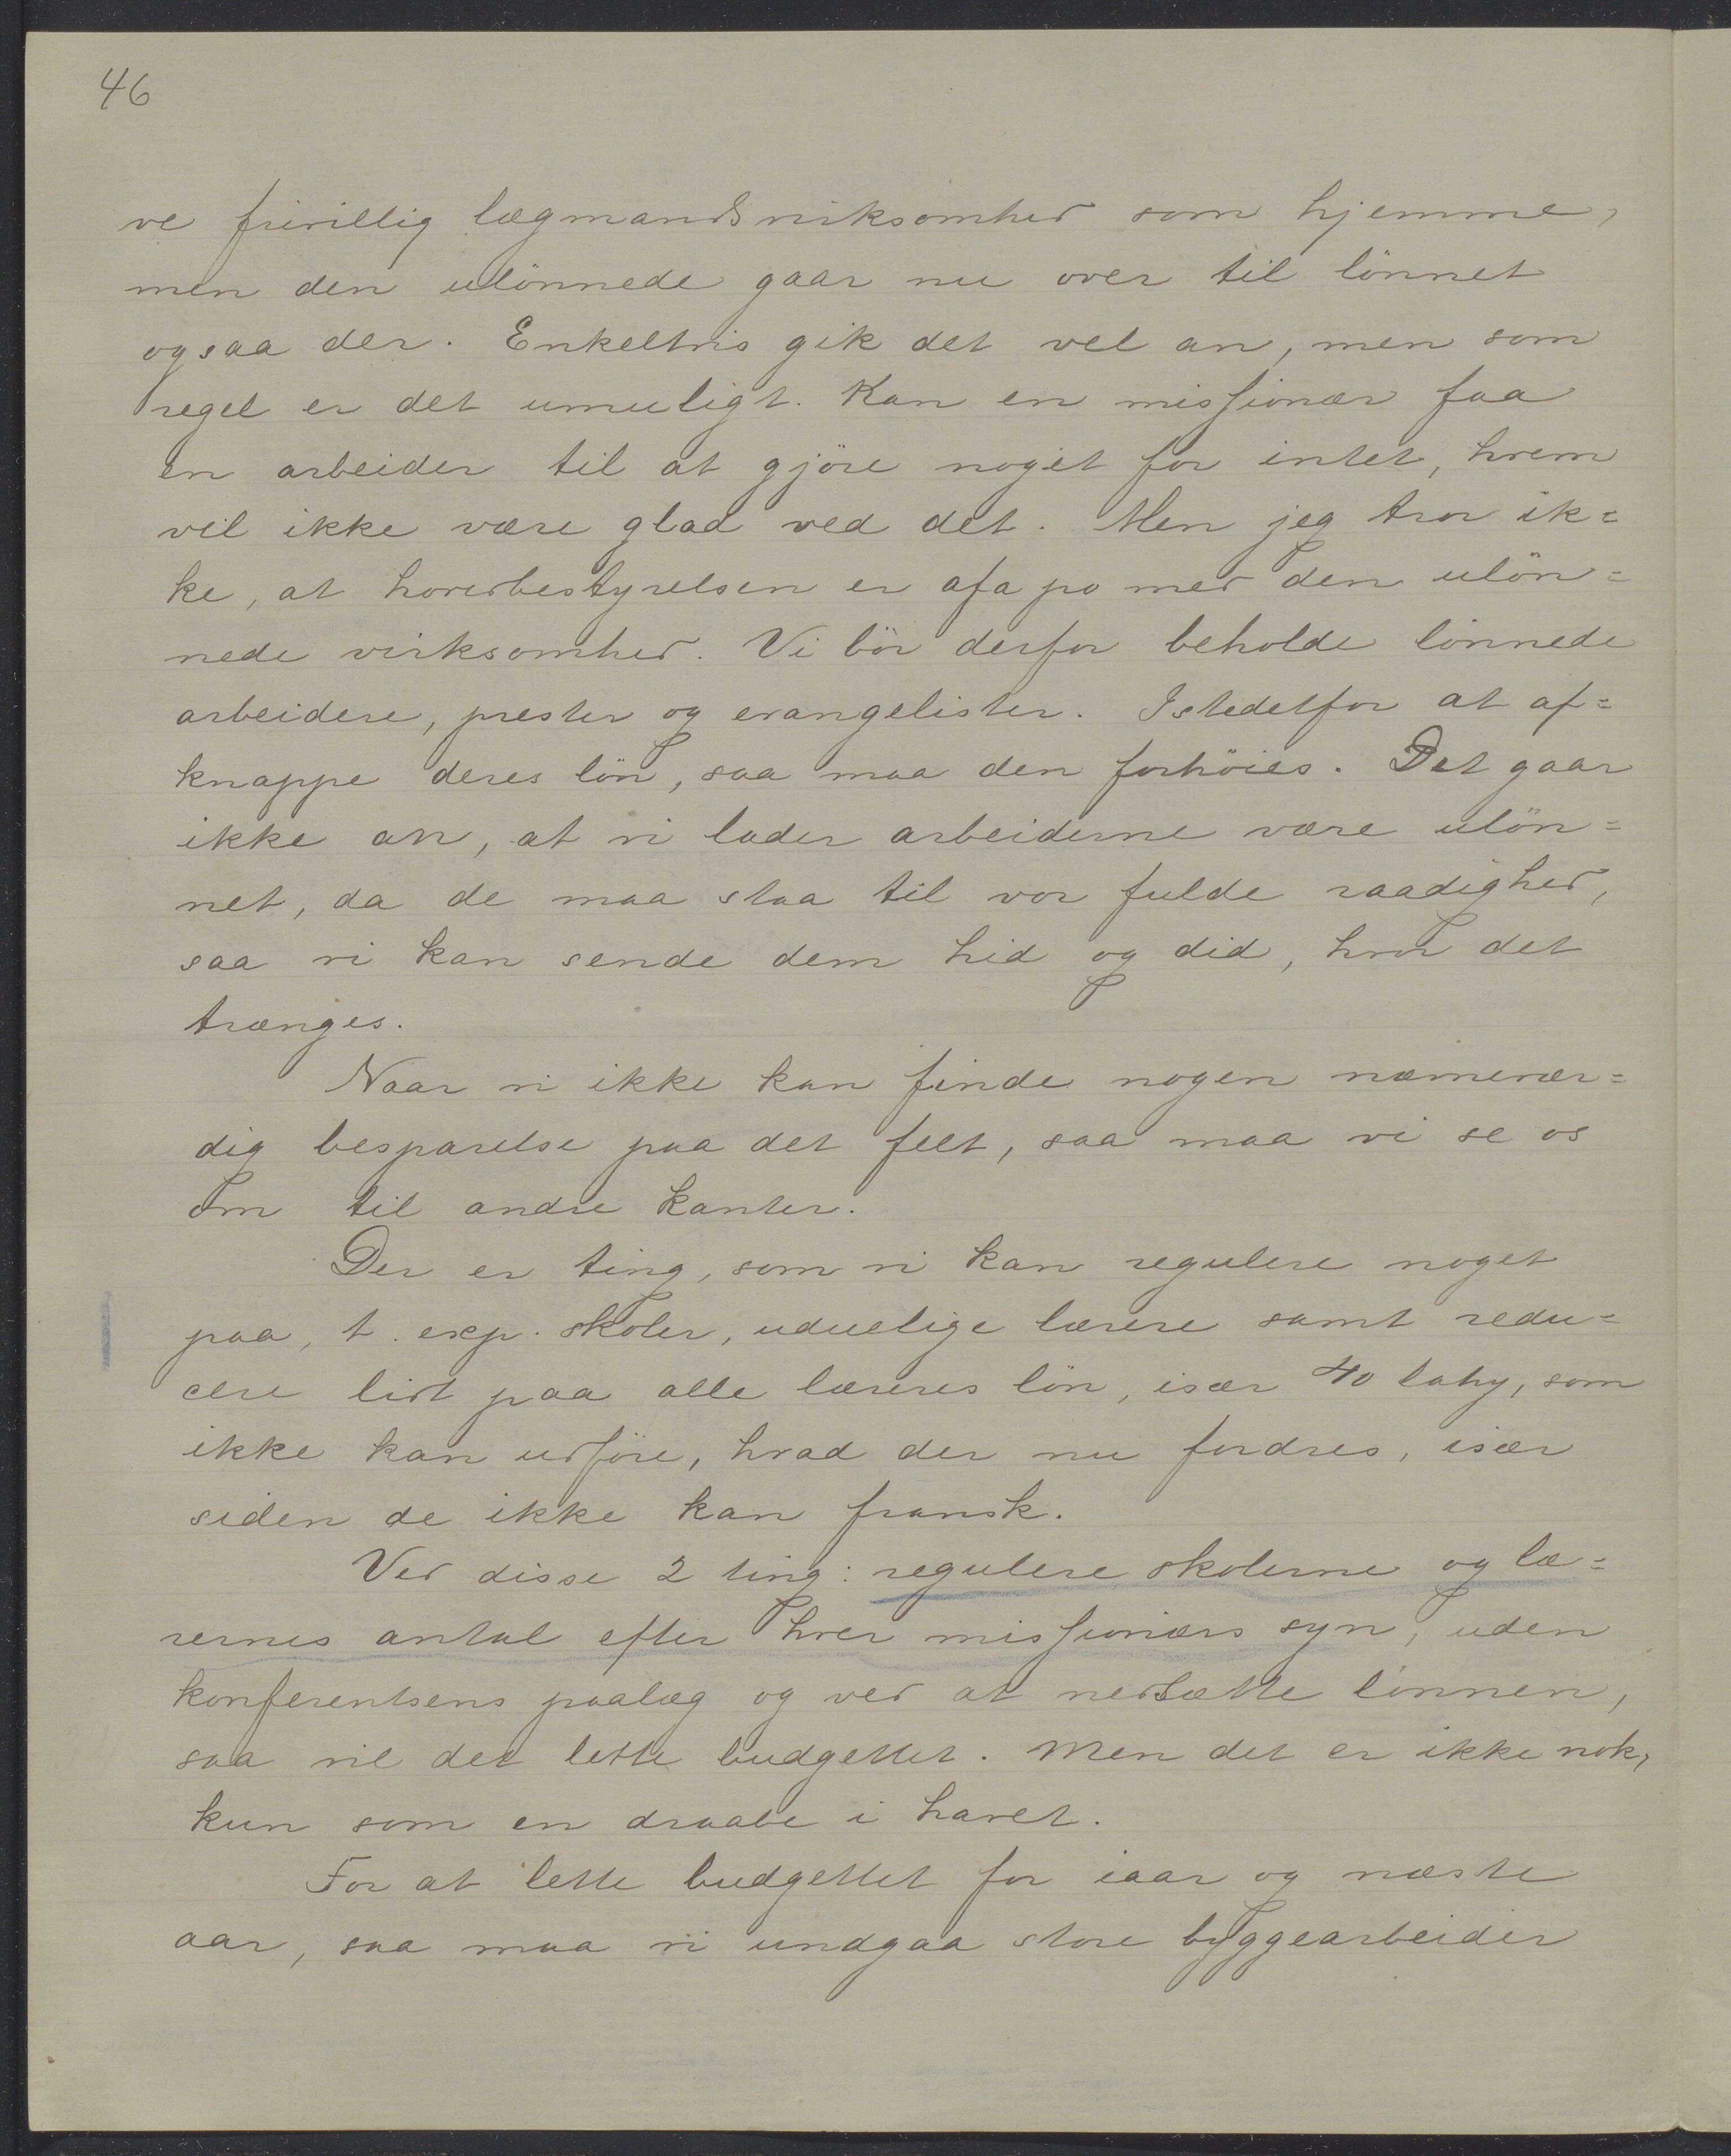 46
ve frivillig lægmandsvirksomhed som hjemme,
men den ulönnede gaar nu over til lönnet
ogsaa der. Enkeltvis gik det vel an, men som
regel er det umuligt. Kan en missionær faa
en arbeider til at gjöre noget for intet, hvem
vil ikke være glad ved det. Men jeg tror ik=
ke, at hovedbestyrelsen er afa po med den ulön=
nede virksomhed. Vi bör derfor beholde lönnede
arbeidere, prester og evangelister. Istedetfor at af=
knappe deres lön, saa maa den forhöies. Det gaar
ikke an, at vi lader arbeiderne være ulön=
net, da de maa staa til vor fulde raadighed,
saa vi kan sende dem hid og did, hvor det
trænges.
Naar vi ikke kan finde nogen nævnevær=
dig besparelse paa det felt, saa maa vi se os
om til andre kanter.
Der er ting, som vi kan regulere noget
paa, t. exp. skoler, uduelige lærere samt redu=
cere lidt paa alle læreres lön, især 40 lahy, som
ikke kan udföre, hvad der nu fordres, især
siden de ikke kan fransk.
Ved disse 2 ting: regulere skolerne og læ=
rernes antal efter hver missionærs syn, uden
konferentsens paalæg og ved at nedsætte lönnen,
saa vil det lette budgettet. Men det er ikke nok,
kun som en draabe i havet.
For at lette budgettet for iaar og næste
aar, saa maa vi undgaa store byggearbeider